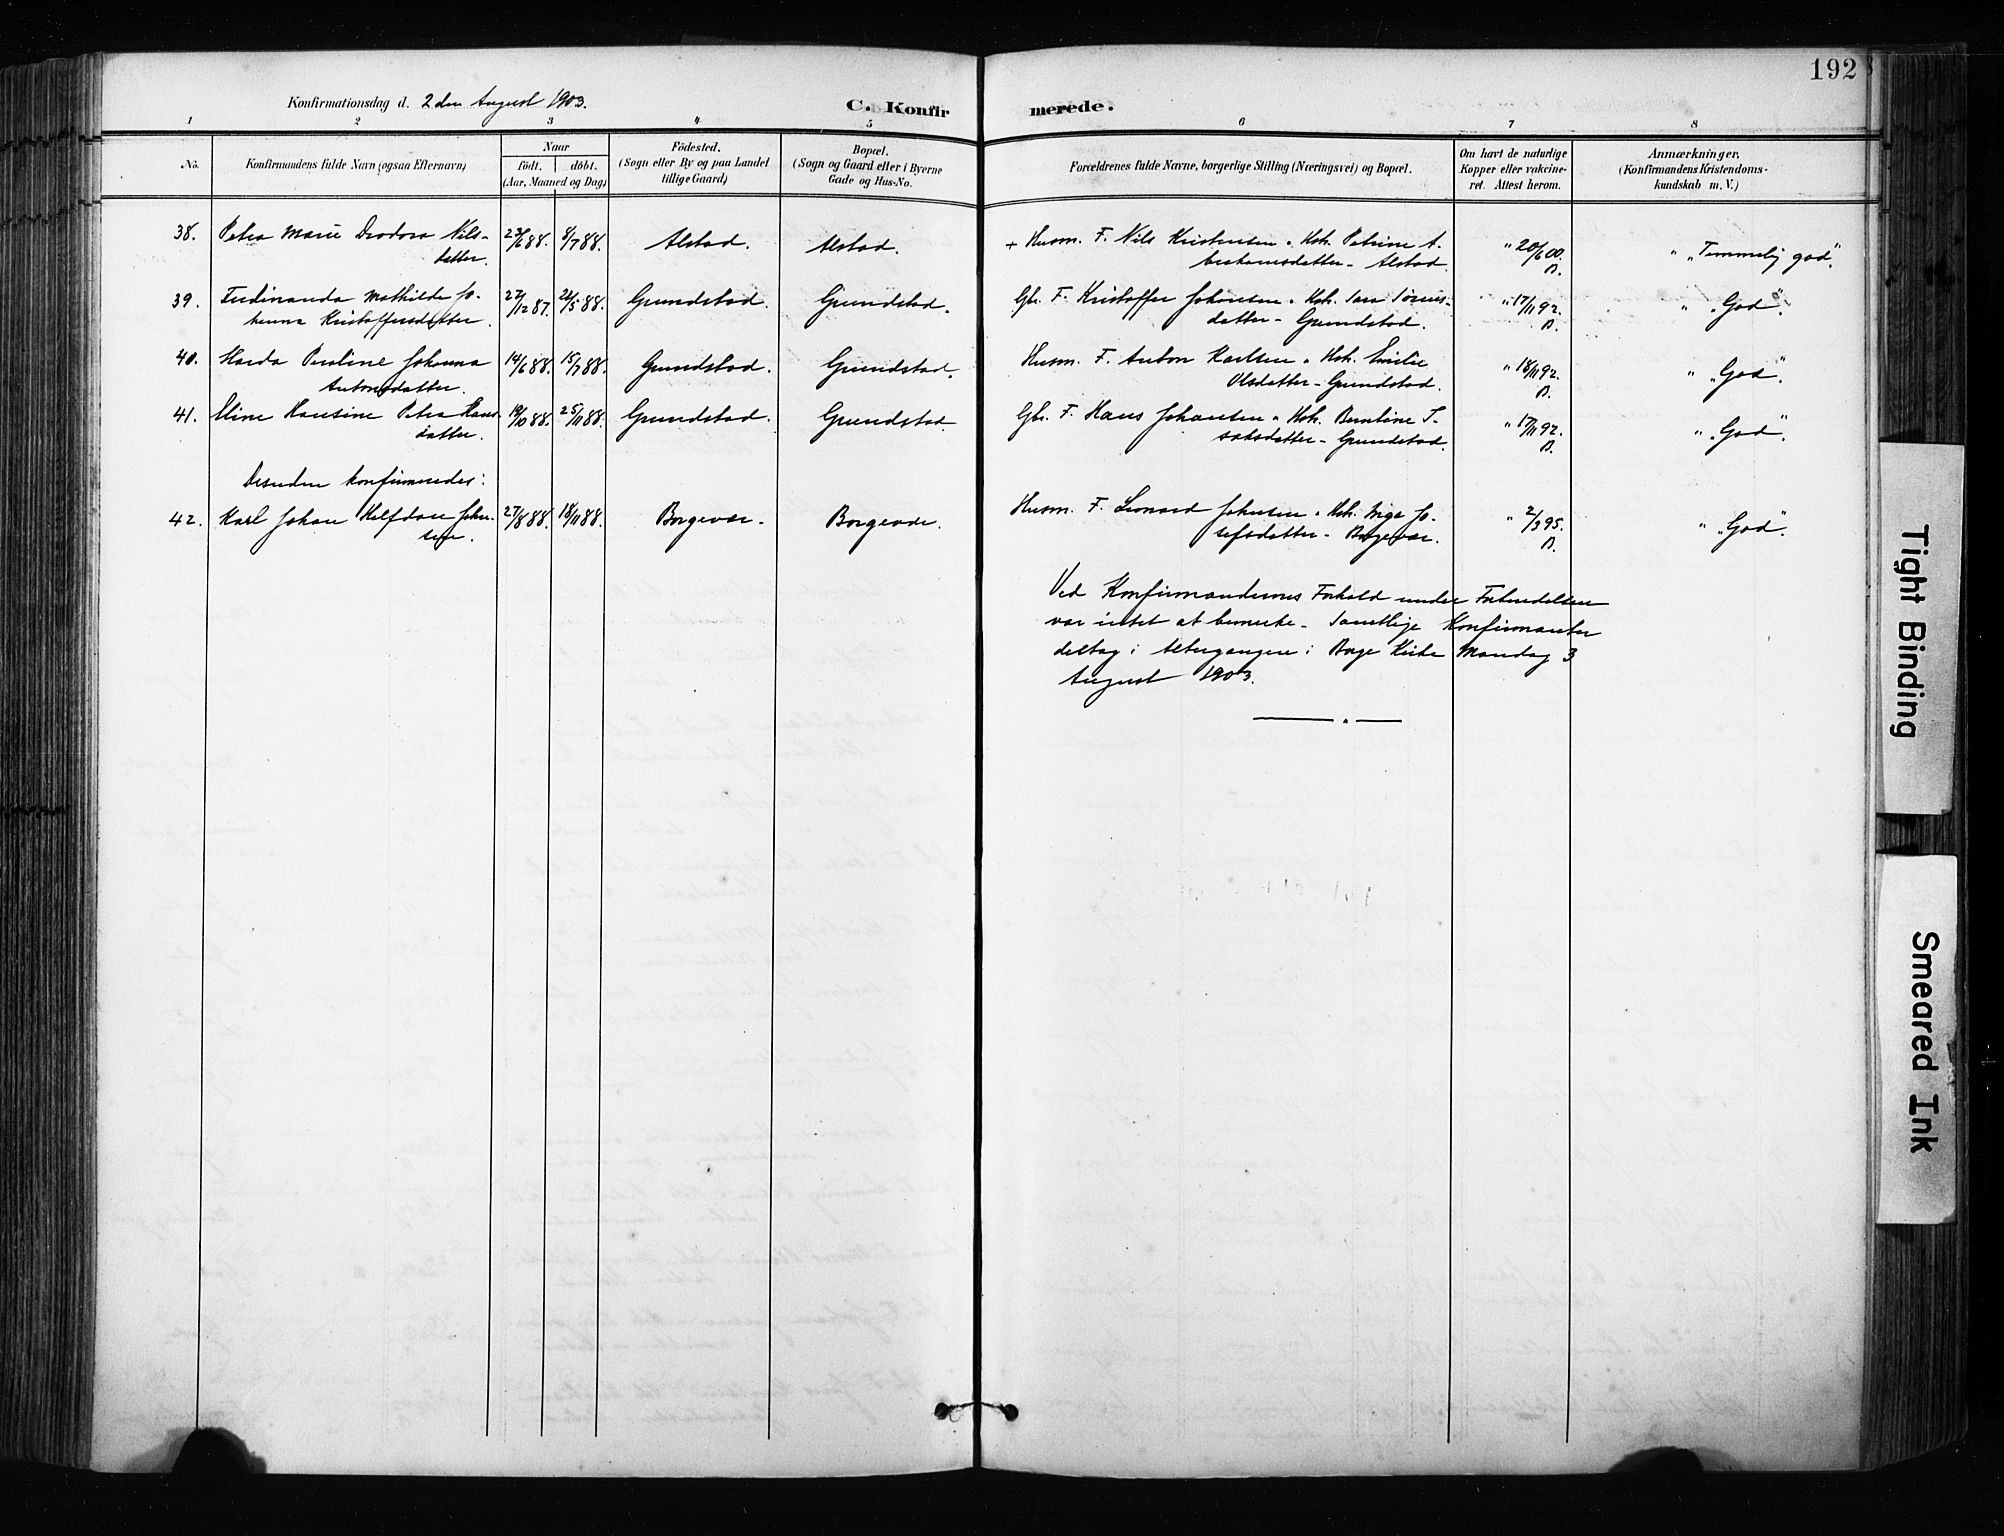 192
Konfirmationsdag d. 2den August 1903.
C. Konfir merede.
1 2 3 4 5 6 7 8
No.
Konfirmandens fulde Navn (ogsaa Efternavn)
Naar
födt. döbt.
(Aar, Maaned og Dag)
Födested.
(Sogn eller By og paa Landet
tillige Gaard)
Bopæl.
(Sogn og Gaard eller i Byerne
Gade og Hus-No.
Forældrenes fulde Navne, borgerlige Stilling (Næringsvei) og Bopæl.
Om havt de naturlige
Kopper eller vakcine-
ret. Attest herom.
Anmærkninger.
(Konfirmandens Kristendoms-
kundskab m. V.)
38. Petra Marie Deodora Nils- 23/6 88. 8/7 88. Alstad. Alstad. + Husm. F. Nils Kristensen & Hstr. Petrine A- " 20/6 00. " "Temmelig god".
datter. datter - Alstad. B.
39. Ferdinanda Mathilde Jo- 27/12 87. 21/5 88. Grundstad. Grundstad. Gbr. F. Kristoffer Johansen & Hstr. Sara Sørens- " 17/11 92. " "God".
hanna Kristoffersdatter. datter - Grundstad. B.
40. Harda Pauline Johanna 14/6 88. 15/7 88. Grundstad. Grundstad. Husm. F. Anton Karlsen & Hstr. Emilie " 18/11 92. " "God".
Antonsdatter. Olsdatter - Grundstad. B.
41. Eline Hansine Petra Hans- 19/10 88. 25/11 88. Grundstad. Grundstad. Gbr. F. Hans Johansen & Hstr. Berntine I- " 17/11 92. " "God".
datter. saksdatter - Grundstad. B.
Desuden konfirmeredes:
42. Karl Johan Halfdan Johan- 27/8 88. 18/11 88. Borgevær. Borgevær. Husm. F. Leonard Johansen & Hstr. Inga Jo- " 2/3 95. " "God".
sen. sefsdatter - Borgevær. B.
Ved Konfirmandernes Forhold under Forberedelsen
var intet at bemærke - Samtlige Konfirmanter
deltog i Altergangen i Borge Kirke Mandag 3
August 1903.
Tight Binding
Smeared Ink